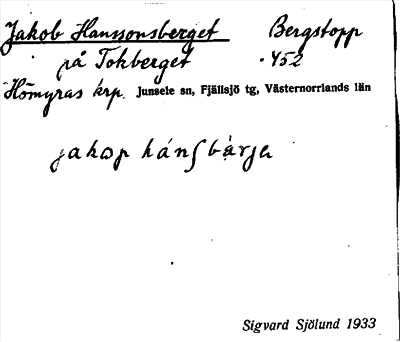 Jakob Hanssonsberget Bergstopp
på Tokberget · 452
Homyras krp. Junsele sn, Fjällsjö tg, Västernorrlands län
jakop hánʃbærjə
Sigvard Sjölund 1933